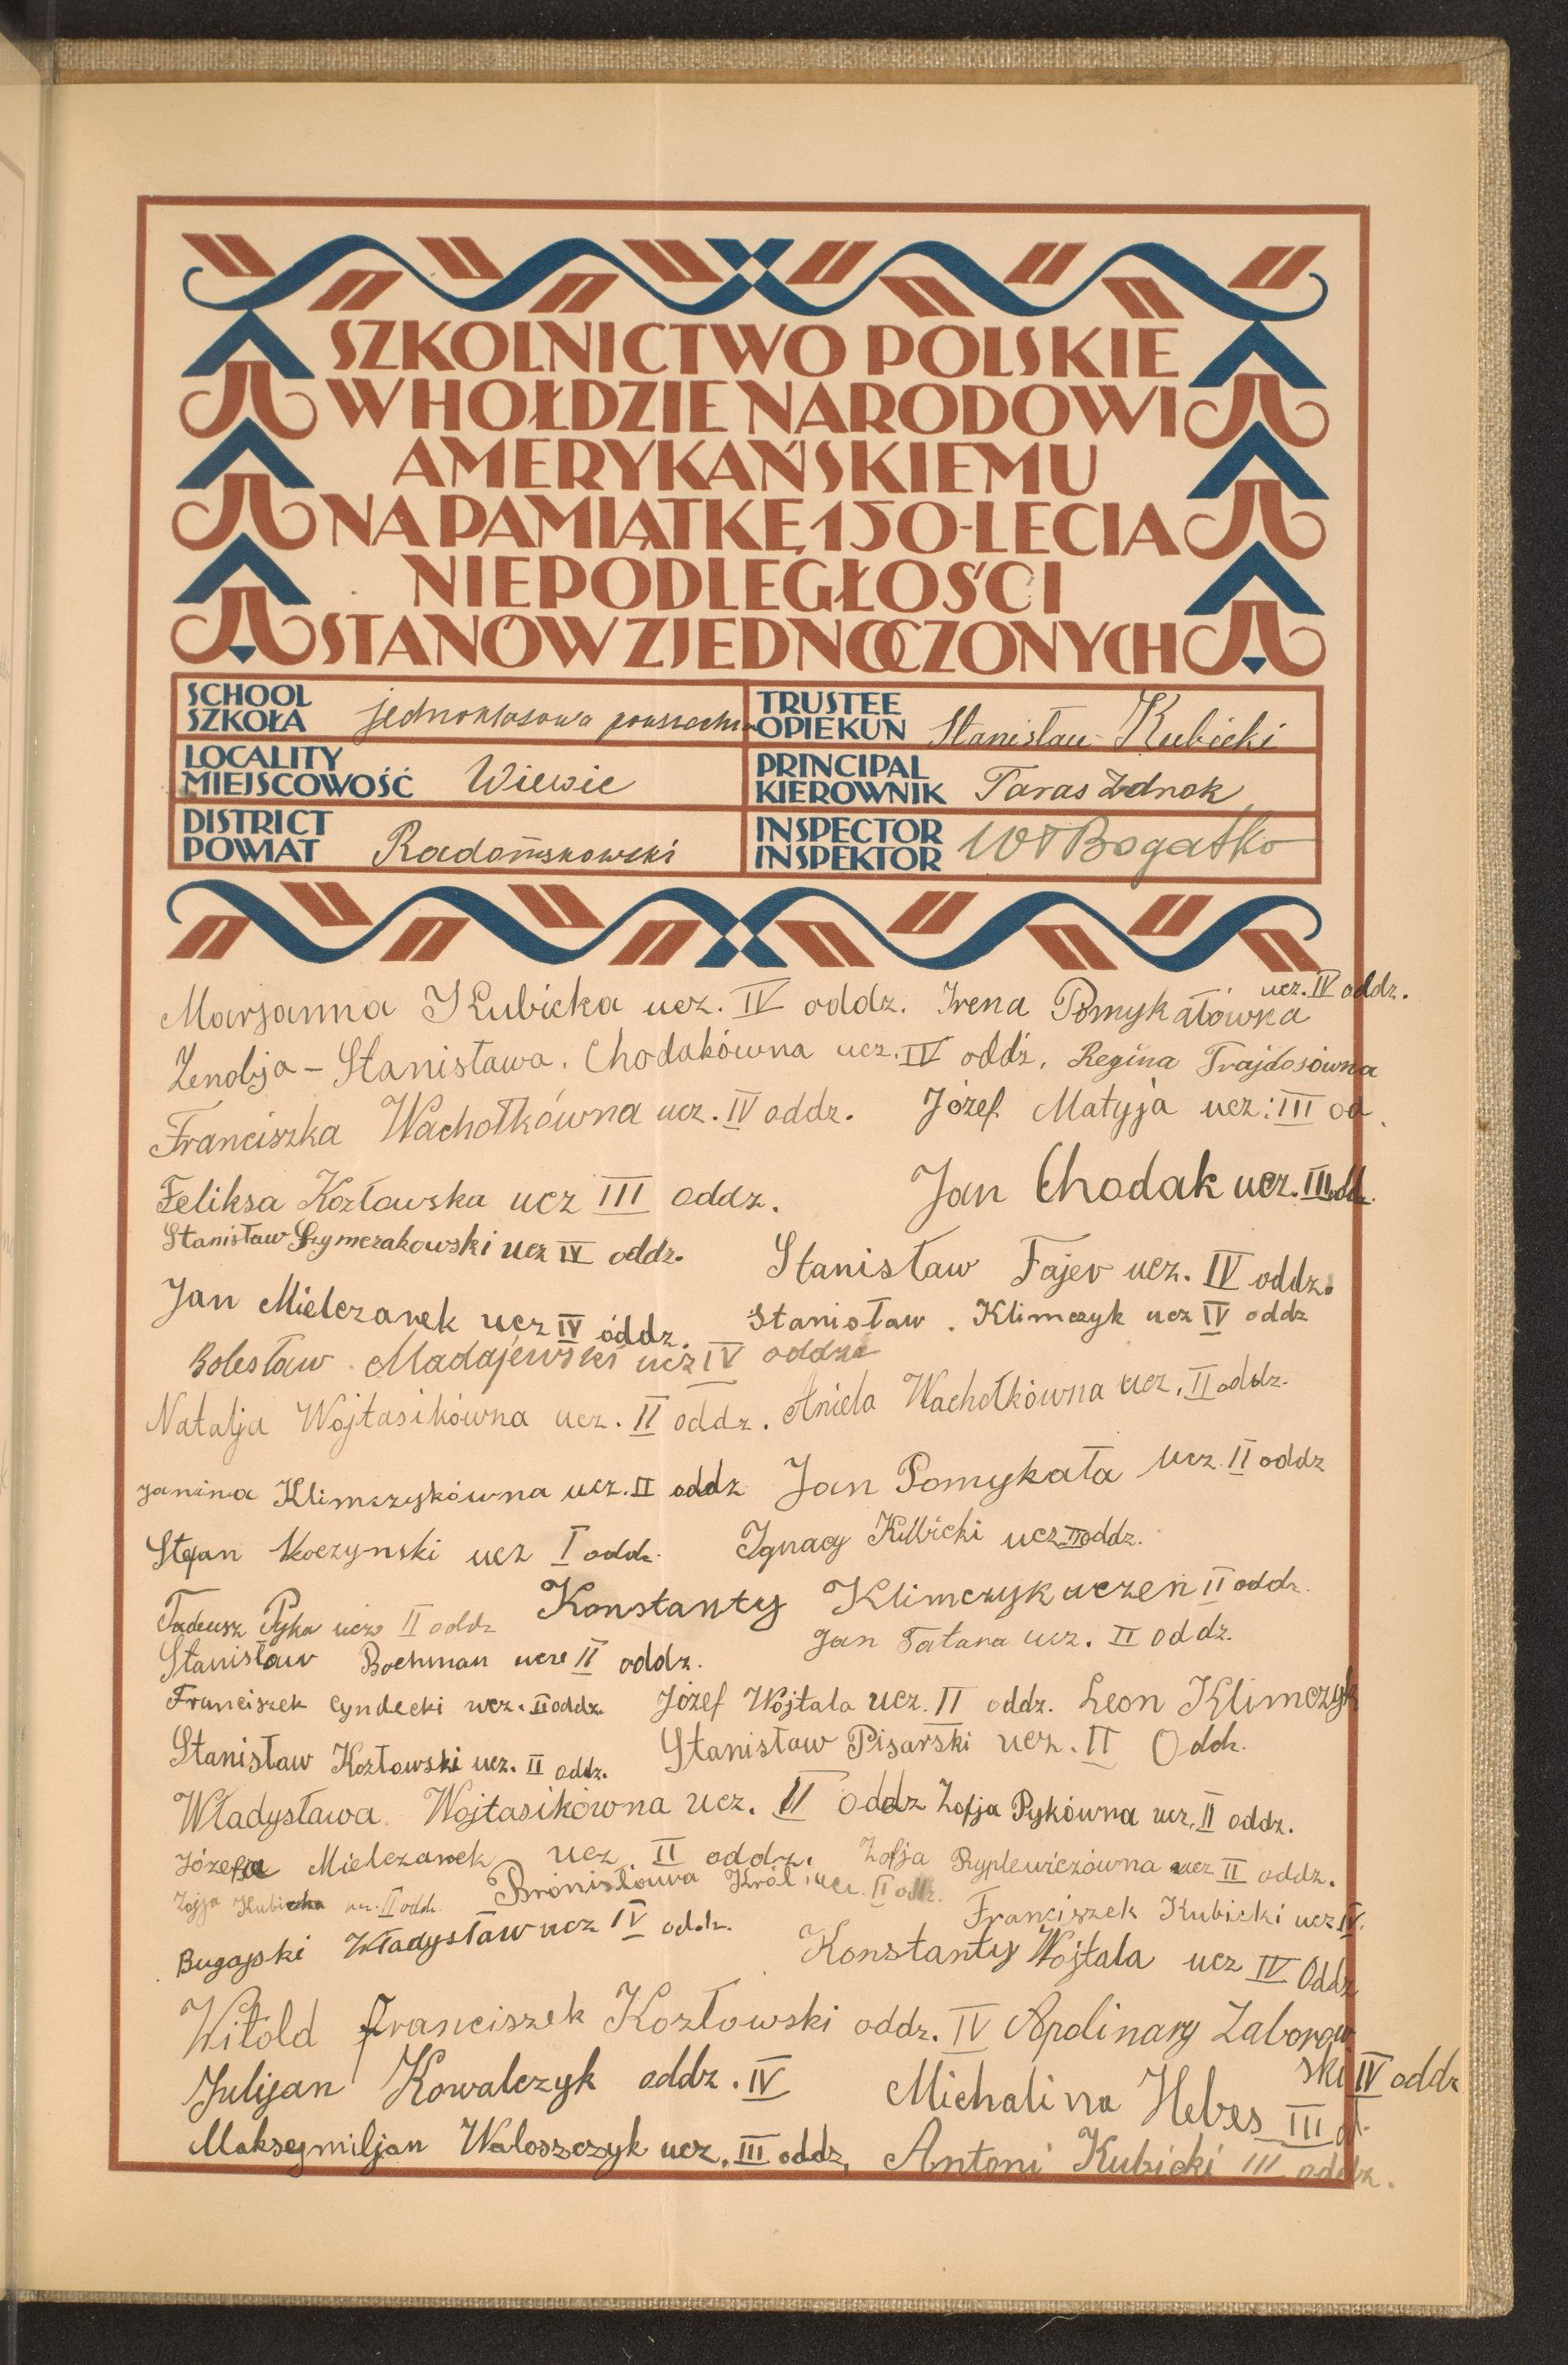 SZKOLNICTWO POLSKIE
W HOŁDZIE NARODOWI
AMERYKAŃSKIEMU
NA PAMIĄTKĘ 150-LECIA
NIEPODLEGŁOŚCI
STANÓW ZJEDNOCZONYCH
SCHOOL
SZKOŁA jednoklasowa powszechna
TRUSTEE
OPIEKUN Stanisław Kubicki
LOCALITY
MIEJSCOWOŚĆ Wiewiec
PRINCIPAL
KIEROWNIK Taras Żdnok
DISTRICT
POWIAT Radomskowski
INSPECTOR
INSPEKTOR Bogatko
Marjanna Kubicka ucz. IV oddz. Irena Pomykałówna ucz. IV oddz.
Zenobja - Stanisława. Chodakówna ucz. IV oddz. Regina Trajdosówna
Franciszka Wachołkówna ucz. IV oddz. Józef Matyja ucz: III od.
Feliksa Kozłowska ucz III oddz. Jan Chodak ucz. III odd.
Stanisław Szymczakowski ucz IV oddz. Stanisław Fajer ucz. IV oddz.
Jan Mielczarek ucz IV oddz. Stanisław. Klimczyk ucz IV oddz
Bolesław. Madajewski ucz IV oddz
Natalja Wojtasikówna ucz. II oddz. Aniela Wachołkówna ucz. II oddz.
Janina Klimczykówna ucz. II oddz Jan Pomykała ucz II oddz
Stefan Skoczynski ucz I oddz. Ignacy Kubicki ucz. II oddz.
Tadeusz Pyka ucz II oddz Konstanty Klimczyk uczeń II oddz.
Stanisław Bochman ucz II oddz. Jan Tatara ucz. II oddz.
Franciszek Cyndecki ucz. II oddz. Józef Wojtala ucz. II oddz. Leon Klimczyk
Stanisław Kozłowski ucz. II oddz. Stanisław Pisarski ucz. II Oddz.
Władysława Wojtasikówna ucz. II oddz Zofja Pykówna ucz. II oddz.
Józefa Mielczarek ucz. II oddz. Zofja Ryplewiczówna ucz II oddz.
Zofja Kubicka ucz. II oddz. Bronisława Król ucz. II oddz.
Franciszek Kubicki ucz IV.
Bugajski Władysław ucz IV oddz. Konstanty Wojtala ucz IV Oddz
Witold Franciszek Kozłowski oddz. IV Apolinary Zaborowski IV oddz
Julijan Kowalczyk oddz. IV Michalina Hebes III d.
Maksymiljan Waloszczyk ucz. III oddz. Antoni Kubicki III oddz.